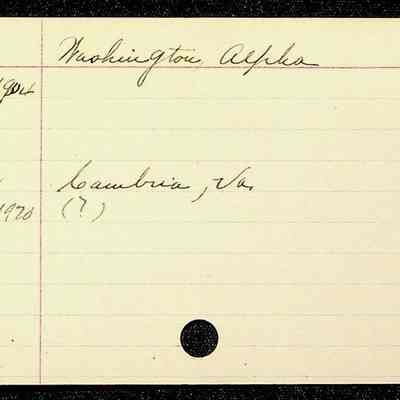 Washington, Alpha
Cambria, Va.
1920 (?)